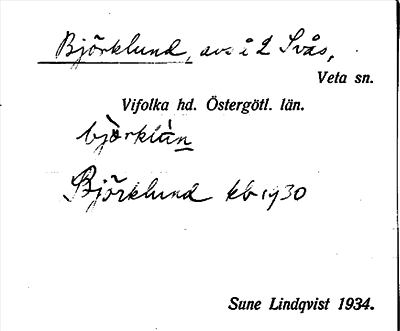 Björklund, avs i 2 Svås,
Veta sn.
Vifolka hd. Östergötl. län.
bjò̀rklàn
Björklund kb 1930
Sune Lindqvist 1934.